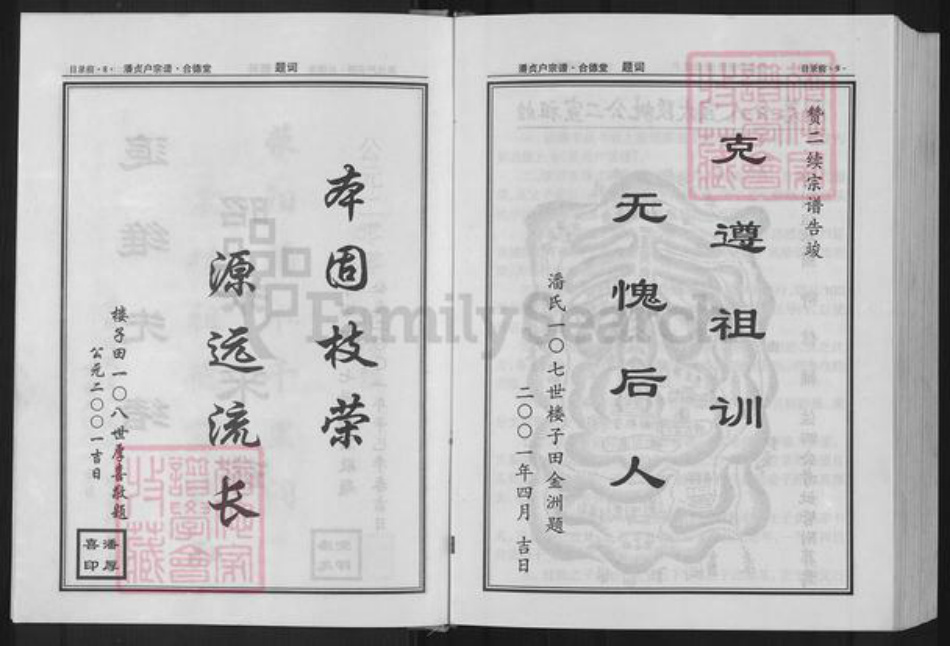 潘贞户宗谱·合德堂 题词
赞二续宗谱告竣
克遵祖训
无愧后人
潘氏一〇七世楼子田金洲题
二〇〇一年四月 吉日
目录前·8· 潘贞户宗谱·合德堂 题词
本固枝荣
源远流长
楼子田一〇八世厚喜敬题
公元二〇〇一吉日
潘厚
喜印
FamilySearch